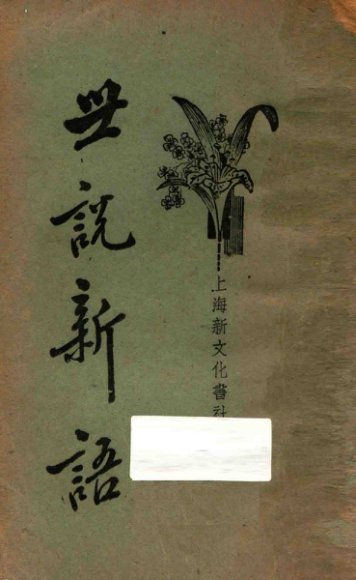 世說新語
上海新文化書社